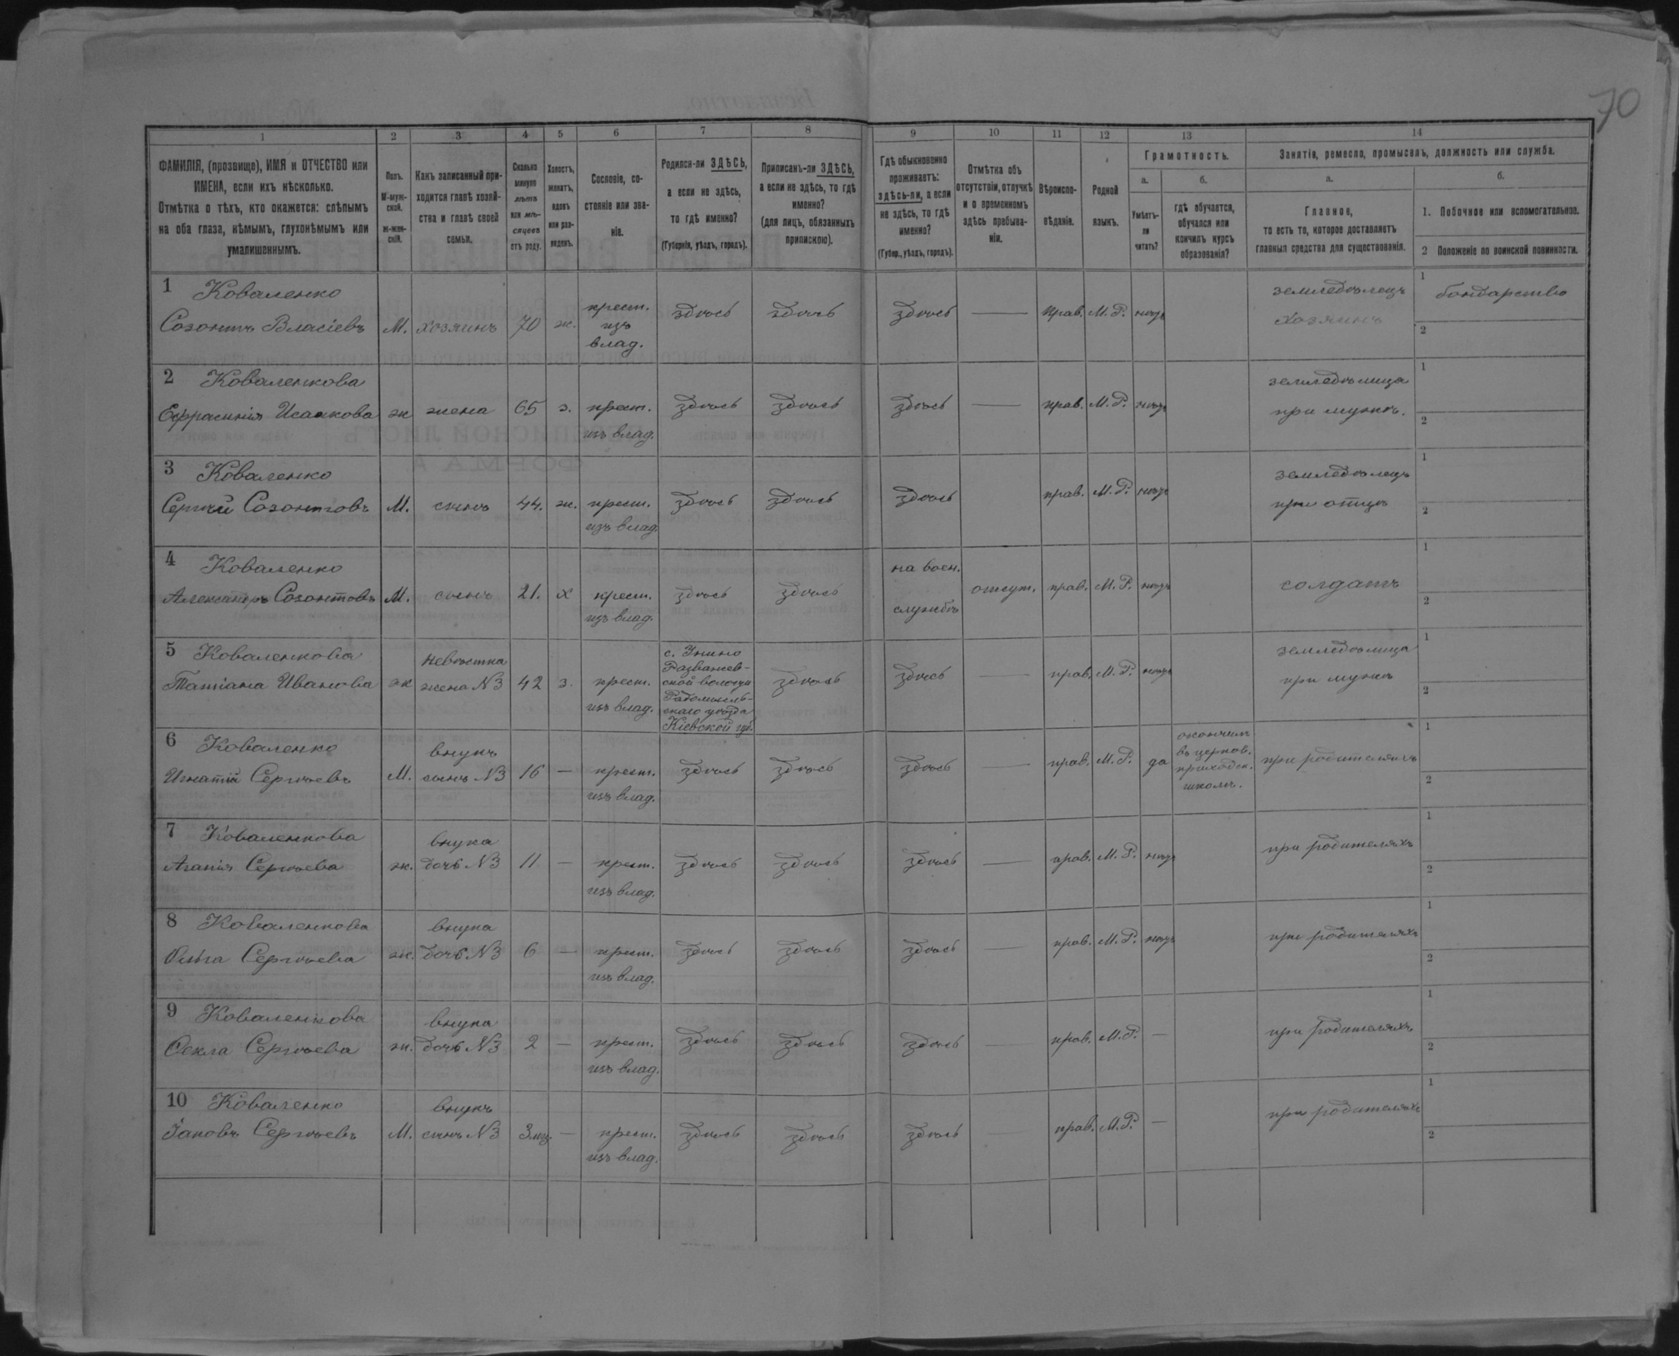 70
1 2 3 4 5 6 7 8 9 10 11 12 13 14
ФАМИЛІЯ, (прозвище), ИМЯ и ОТЧЕСТВО или
ИМЕНА, если ихъ нѣсколько.
Отмѣтка о тѣхъ, кто окажется: слѣпымъ
на оба глаза, нѣмымъ, глухонѣмымъ или
умалишеннымъ.
Полъ.
М-муж-
ской.
ж-жен-
скій.
Какъ записанный при-
ходится главѣ хозяй-
ства и главѣ своей
семьи.
Сколько
минуло
лѣтъ
или мѣ-
сяцевъ
отъ роду.
Холостъ,
женатъ,
вдовъ
или раз-
веденъ.
Сословіе, со-
стояніе или зва-
ніе.
Родился-ли ЗДѢСЬ,
а если не здѣсь,
то гдѣ именно?
(Губернія, уѣздъ, городъ).
Приписанъ-ли ЗДѢСЬ,
а если не здѣсь, то гдѣ
именно?
(для лицъ, обязанныхъ
припискою).
Гдѣ обыкновенно
проживаетъ:
здѣсь-ли, а если
не здѣсь, то гдѣ
именно?
(Губер., уѣздъ, городъ).
Отмѣтка объ
отсутствіи, отлучкѣ
и о временномъ
здѣсь пребыва-
ніи.
Вѣроиспо-
вѣданіе.
Родной
языкъ.
Грамотность.
а.
Умѣетъ-
ли
читать?
б.
гдѣ обучается,
обучался или
кончилъ курсъ
образованія?
Занятіе, ремесло, промыселъ, должность или служба.
а.
Главное,
то есть то, которое доставляетъ
главныя средства для существованія.
б.
1. Побочное или вспомогательное.
2 Положеніе по воинской повинности.
1 Коваленко
Созонтъ Власіевъ М. хозяинъ 70 ж. крест. изъ влад. здѣсь здѣсь здѣсь — прав. М.Р. нѣтъ земледѣлецъ хозяинъ 1 бондарство 2
2 Коваленкова
Ефросинія Исаакова ж жена 65 з. крест. изъ влад. здѣсь здѣсь здѣсь — прав. М.Р. нѣтъ земледѣлица при мужѣ. 1 2
3 Коваленко
Сергѣй Созонтовъ М. сынъ 44. ж. крест. изъ влад. здѣсь здѣсь здѣсь прав. М.Р. нѣтъ земледѣлецъ при отцѣ 1 2
4 Коваленко
Александръ Созонтовъ М. сынъ 21. х крест. изъ влад. здѣсь здѣсь на воен. службѣ отсут. прав. М.Р. нѣтъ солдатъ 1 2
5 Коваленкова
Татіана Иванова ж невѣстка жена №3 42 з. крест. изъ влад. с. Унино Розважев-
ской волости
Радомысль-
скаго уѣзда
Кіевской губ. здѣсь здѣсь — прав. М.Р. нѣтъ земледѣлица при мужѣ 1 2
6 Коваленко
Игнатій Сергѣевъ М. внукъ сынъ №3 16 — крест. изъ влад. здѣсь здѣсь здѣсь — прав. М.Р. да окончилъ
въ церков.
приходск.
школѣ. при родителяхъ 1 2
7 Коваленкова
Агапія Сергѣева ж. внука дочь №3 11 — крест. изъ влад. здѣсь здѣсь здѣсь — прав. М.Р. нѣтъ при родителяхъ 1 2
8 Коваленкова
Ольга Сергѣева ж. внука дочь №3 6 — крест. изъ влад. здѣсь здѣсь здѣсь — прав. М.Р. нѣтъ при родителяхъ 1 2
9 Коваленкова
Ѳекла Сергѣева ж. внука дочь №3 2 — крест. изъ влад. здѣсь здѣсь здѣсь — прав. М.Р. — при родителяхъ 1 2
10 Коваленко
Іаковъ Сергѣевъ М. внукъ сынъ №3 3 мѣс. — крест. изъ влад. здѣсь здѣсь здѣсь — прав. М.Р. — при родителяхъ 1 2